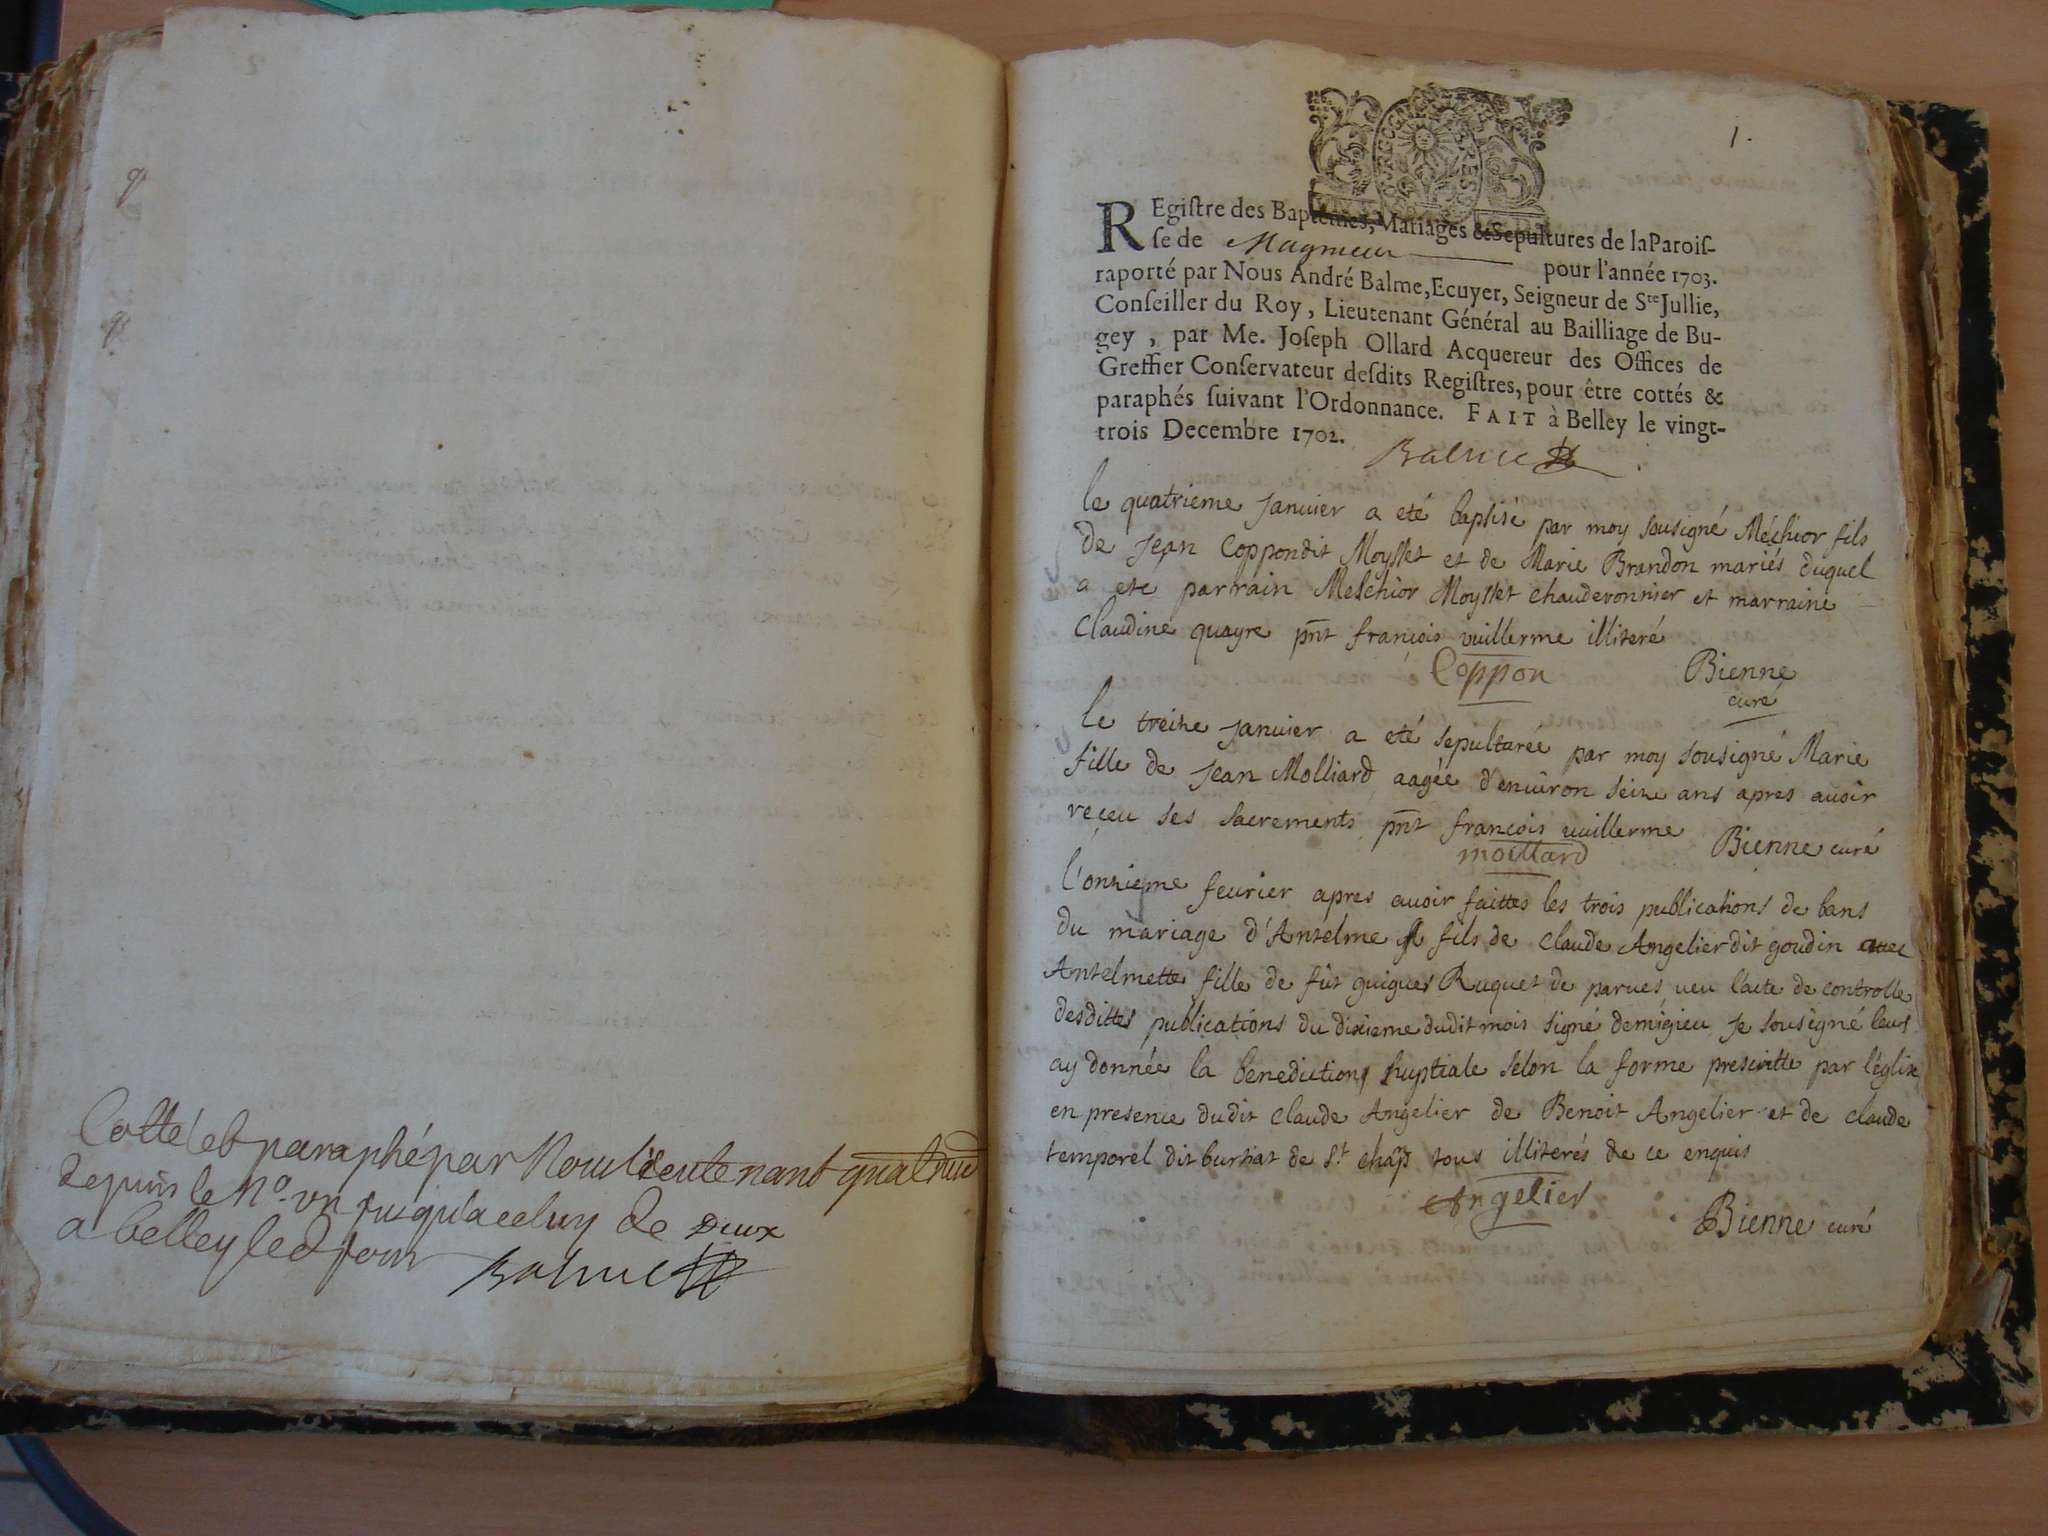 Cotté et paraphé par Nous lieutenant gnal
depuis le No. un jusqu'a celuy de Deux
a belley led jour Balme
1.
REgiſtre des Baptêmes, Mariages & Sepultures de la Paroiſ-
ſe de Magnieu pour l'année 1703.
raporté par Nous André Balme, Ecuyer, Seigneur de Ste Jullie,
Conſeiller du Roy, Lieutenant Général au Bailliage de Bu-
gey, par Me. Joſeph Ollard Acquereur des Offices de
Greffier Conſervateur deſdits Regiſtres, pour être cottés &
paraphés ſuivant l'Ordonnance. FAIT à Belley le vingt-
trois Decembre 1702.
Balme
le quatrieme Januier a eté baptisé par moy sousigné Melchior fils
de Jean Coppon dit Moysset et de Marie Brandon mariés duquel
a eté parrain Melchior Moysset chauderonnier et marraine
Claudine quayre pnt françois vuillerme illiteré
Coppon Bienne
curé
le treize Januier a eté sepulturée par moy sousigné Marie
fille de Jean Molliard aagée d'enuiron seize ans apres auoir
reçeu ses sacrements pnt françois vuillerme Bienne curé
moillard
l'onzieme feurier apres auoir faittes les trois publications de bans
du mariage d'Antelme fils de Claude Angelier dit goudin auec
Antelmette fille de fût guigues Ruquet de parues, veu l'acte de controlle
desdittes publications du dixieme dudit mois signé demigieu, Je sousigné leur
ay donnée la benediction nuptiale selon la forme prescritte par l'eglise
en presence dudit Claude Angelier de Benoit Angelier et de Claude
temporel dit burtat de St. chãp tous illiterés de ce enquis
Angelier
Bienne curé